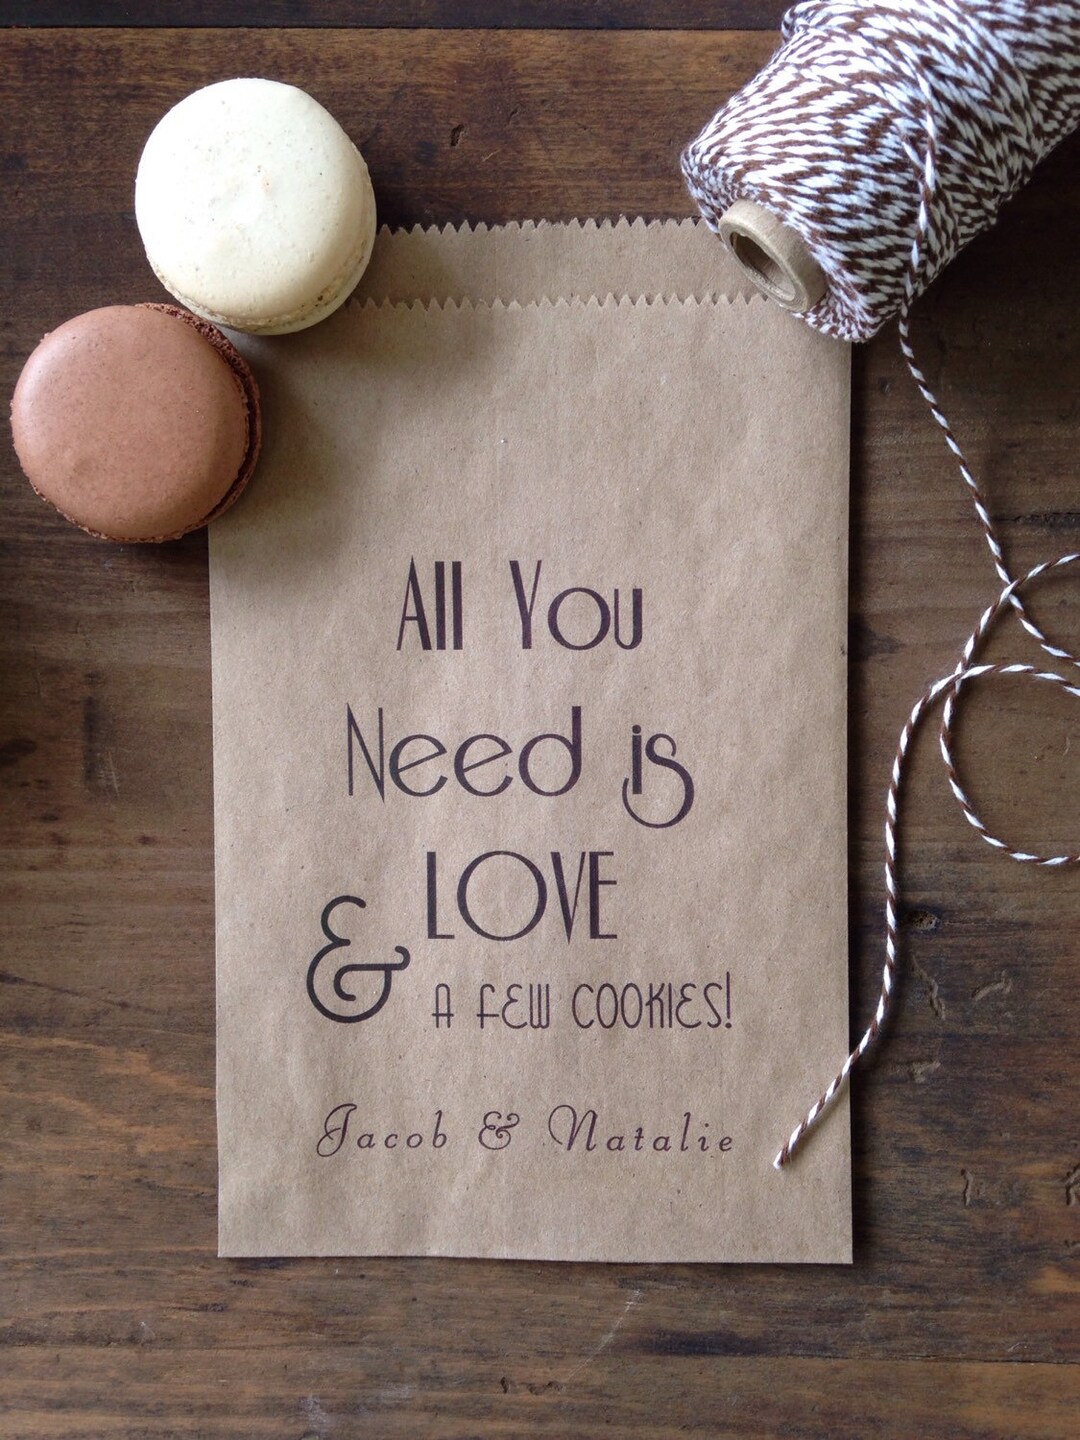 All You
Need is
LOVE
& A FEW COOKIES!
Jacob & Natalie